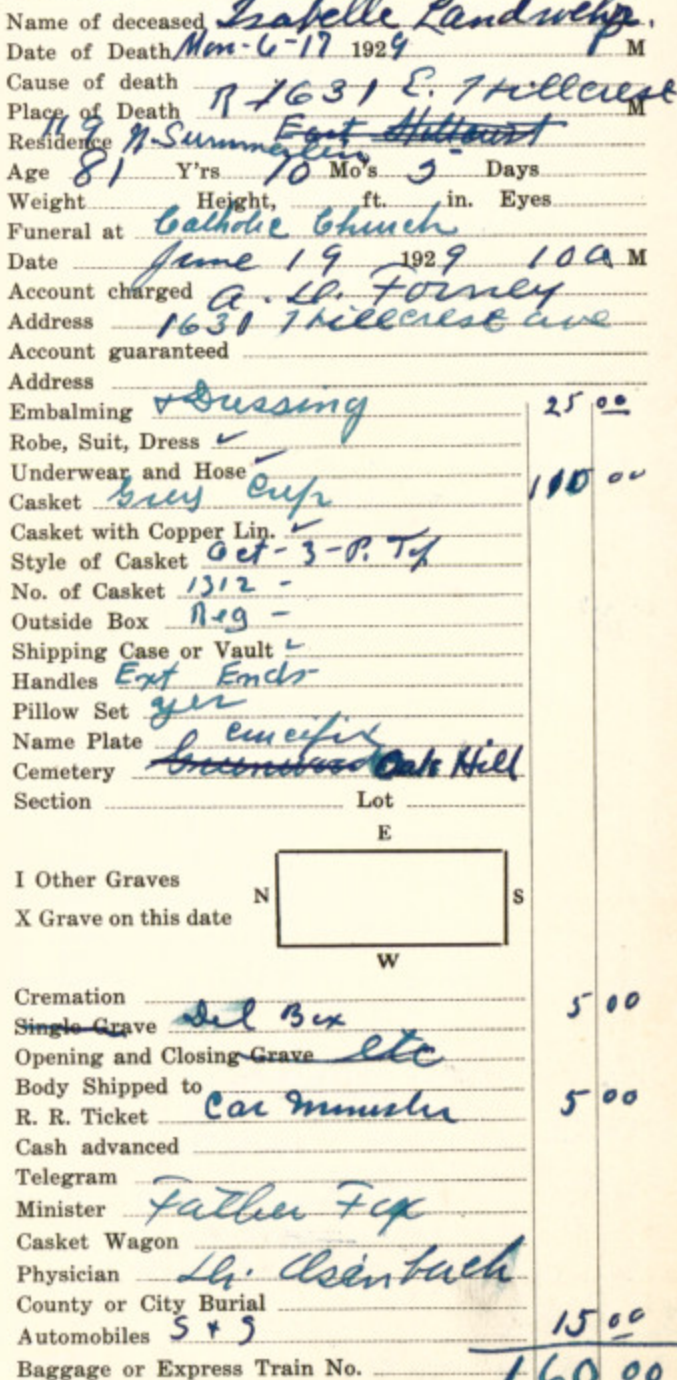 Name of deceased Isabelle Landwehr.
Date of Death Mon-6-17 1929 P M
Cause of death
Place of Death R 1631 E. Hillcrest M
Residence 119 N. Summerlin East Hillcrest
Age 81 Y'rs 10 Mo's 5 Days
Weight Height, ft. in. Eyes
Funeral at Catholic Church
Date June 19 1929 10 A M
Account charged A. D. Forney
Address 1631 Hillcrest ave
Account guaranteed
Address
Embalming + Dressing 25 00
Robe, Suit, Dress ✓
Underwear and Hose ✓
Casket Grey Crep 110 00
Casket with Copper Lin. ✓
Style of Casket Oct - 3 - P. Top
No. of Casket 1312 -
Outside Box Reg -
Shipping Case or Vault ✓
Handles Ext Ends
Pillow Set yes
Name Plate crucifix
Cemetery Greenwood Oak Hill
Section Lot
E
I Other Graves
N S
X Grave on this date
W
Cremation
Single Grave Del Box 5 00
Opening and Closing Grave etc
Body Shipped to
R. R. Ticket Car Minister 5 00
Cash advanced
Telegram
Minister Father Fox
Casket Wagon
Physician Dr.
County or City Burial
Automobiles S + S 15 00
Baggage or Express Train No. 160 00